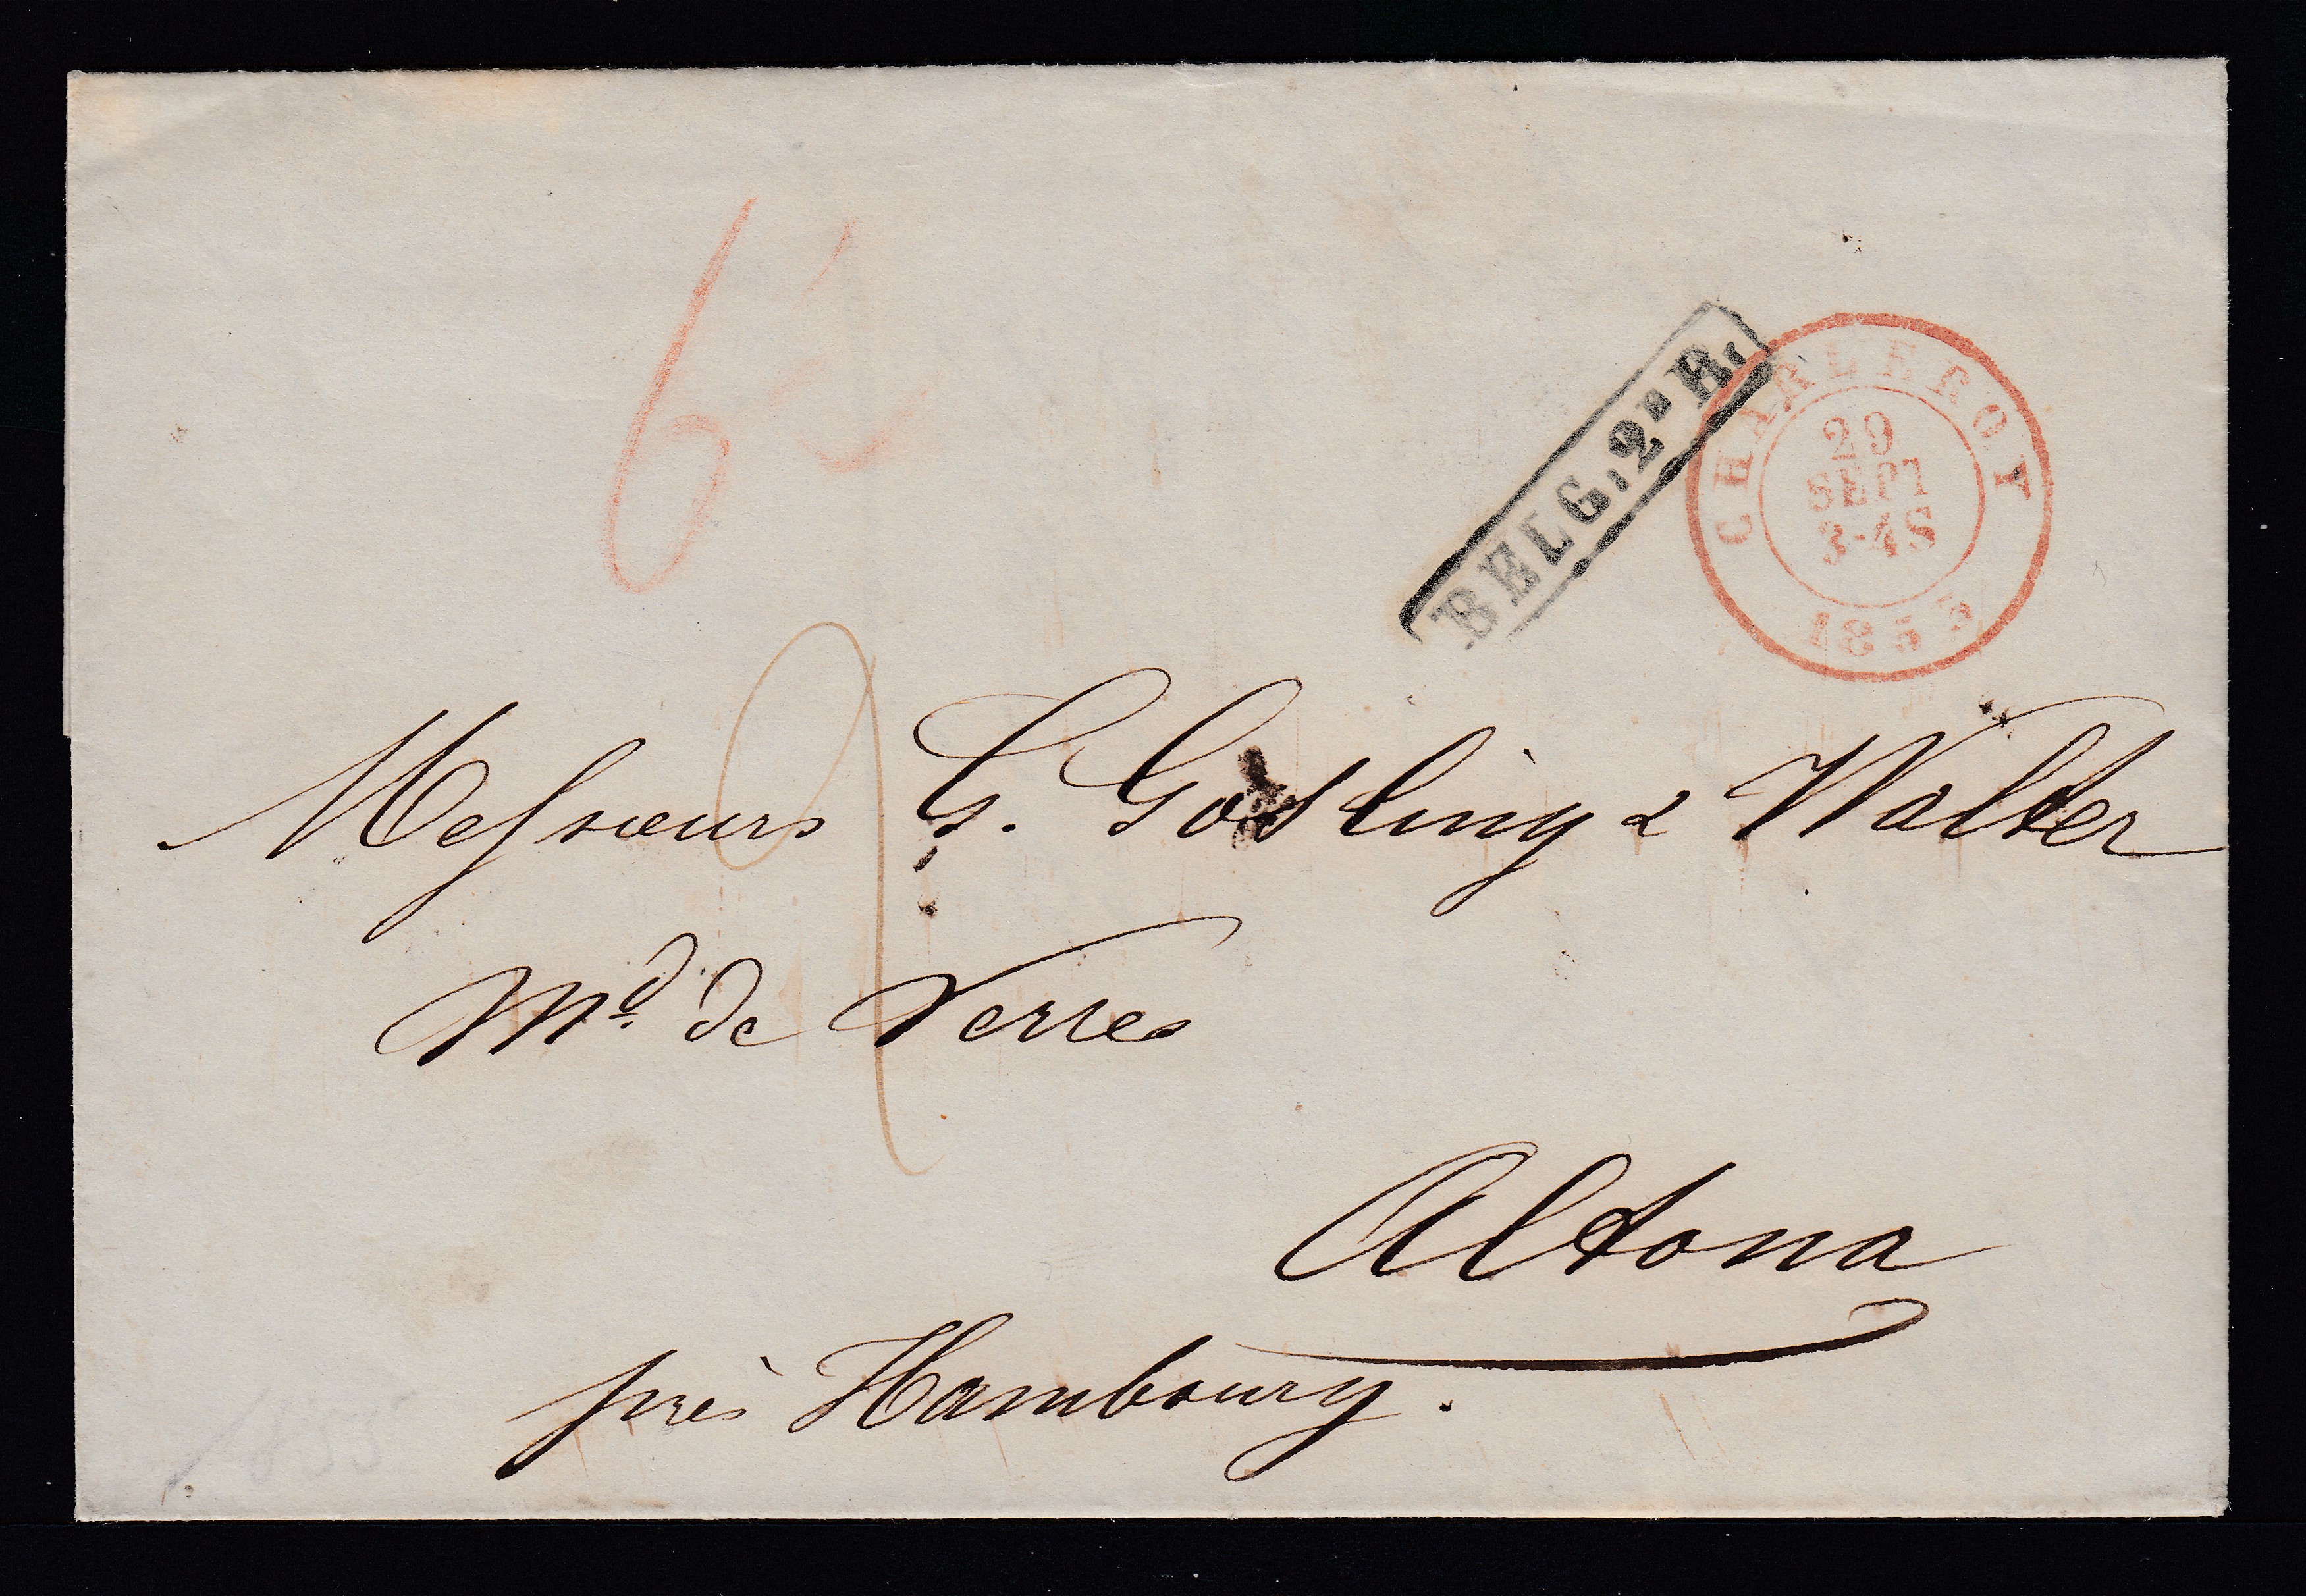 6
BELG. 2E R.
CHARLEROY
29
SEPT
3-4S
185
Messieurs G. Gosling & Wolter
Md. de Verres
Altona
près Hambourg.